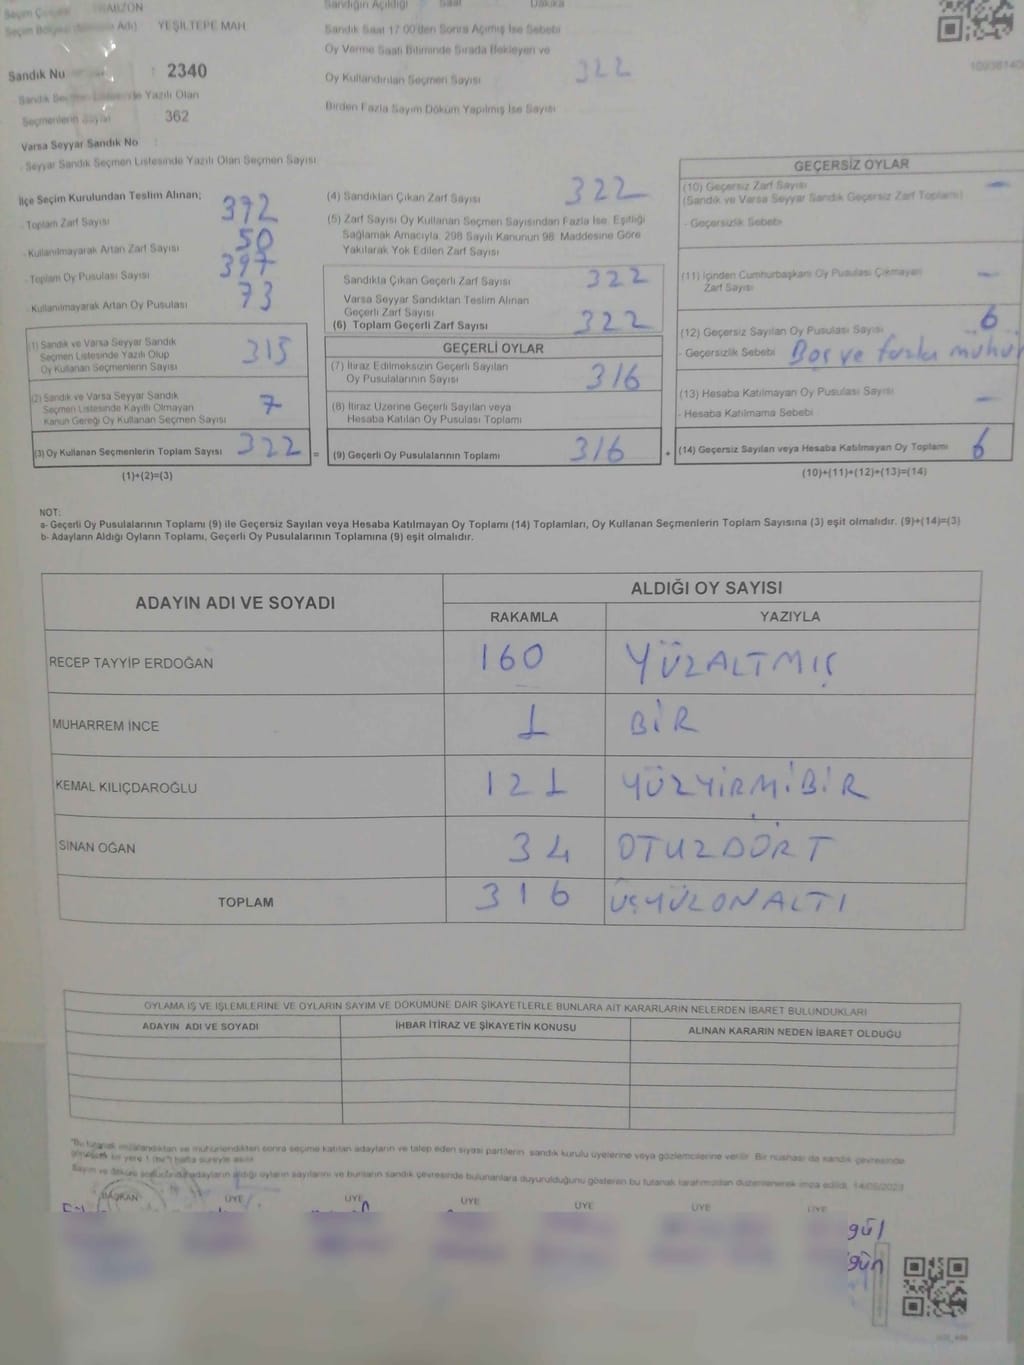 YEŞİLTEPE MAH
Sandık No : 2340
Sandık Seçmen Listesinde Yazılı Olan
Seçmenlerin Sayısı 362
Varsa Seyyar Sandık No :
- Seyyar Sandık Seçmen Listesinde Yazılı Olan Seçmen Sayısı
Sandığın Açıldığı Saat Dakika
Sandık Saat 17:00'den Sonra Açılmış İse Sebebi
Oy Verme Saati Bitiminde Sırada Bekleyen ve
Oy Kullandırılan Seçmen Sayısı 322
Birden Fazla Sayım Döküm Yapılmış İse Sayısı
İlçe Seçim Kurulundan Teslim Alınan;
- Toplam Zarf Sayısı 372
- Kullanılmayarak Artan Zarf Sayısı 50
- Toplam Oy Pusulası Sayısı 397
- Kullanılmayarak Artan Oy Pusulası 73
(1) Sandık ve Varsa Seyyar Sandık
Seçmen Listesinde Yazılı Olup
Oy Kullanan Seçmenlerin Sayısı 315
(2) Sandık ve Varsa Seyyar Sandık
Seçmen Listesinde Kayıtlı Olmayan
Kanun Gereği Oy Kullanan Seçmen Sayısı 7
(3) Oy Kullanan Seçmenlerin Toplam Sayısı 322 =
(1)+(2)=(3)
(4) Sandıktan Çıkan Zarf Sayısı 322
(5) Zarf Sayısı Oy Kullanan Seçmen Sayısından Fazla İse, Eşitliği
Sağlamak Amacıyla, 298 Sayılı Kanunun 98. Maddesine Göre
Yakılarak Yok Edilen Zarf Sayısı
Sandıkta Çıkan Geçerli Zarf Sayısı 322
Varsa Seyyar Sandıktan Teslim Alınan
Geçerli Zarf Sayısı
(6) Toplam Geçerli Zarf Sayısı 322
GEÇERLİ OYLAR
(7) İtiraz Edilmeksizin Geçerli Sayılan
Oy Pusulalarının Sayısı 316
(8) İtiraz Üzerine Geçerli Sayılan veya
Hesaba Katılan Oy Pusulası Toplamı
(9) Geçerli Oy Pusulalarının Toplamı 316 +
GEÇERSİZ OYLAR
(10) Geçersiz Zarf Sayısı –
(Sandık ve Varsa Seyyar Sandık Geçersiz Zarf Toplamı)
- Geçersizlik Sebebi
(11) İçinden Cumhurbaşkanı Oy Pusulası Çıkmayan
Zarf Sayısı –
(12) Geçersiz Sayılan Oy Pusulası Sayısı 6
- Geçersizlik Sebebi Boş ve fazla mühür
(13) Hesaba Katılmayan Oy Pusulası Sayısı –
- Hesaba Katılmama Sebebi
(14) Geçersiz Sayılan veya Hesaba Katılmayan Oy Toplamı 6
(10)+(11)+(12)+(13)=(14)
NOT:
a- Geçerli Oy Pusulalarının Toplamı (9) ile Geçersiz Sayılan veya Hesaba Katılmayan Oy Toplamı (14) Toplamları, Oy Kullanan Seçmenlerin Toplam Sayısına (3) eşit olmalıdır. (9)+(14)=(3)
b- Adayların Aldığı Oyların Toplamı, Geçerli Oy Pusulalarının Toplamına (9) eşit olmalıdır.
ADAYIN ADI VE SOYADI ALDIĞI OY SAYISI
RAKAMLA YAZIYLA
RECEP TAYYİP ERDOĞAN 160 YÜZALTMIŞ
MUHARREM İNCE 1 BİR
KEMAL KILIÇDAROĞLU 121 YÜZYİRMİBİR
SİNAN OĞAN 34 OTUZDÖRT
TOPLAM 316 ÜÇYÜZONALTI
OYLAMA İŞ VE İŞLEMLERİNE VE OYLARIN SAYIM VE DÖKÜMÜNE DAİR ŞİKAYETLERLE BUNLARA AİT KARARLARIN NELERDEN İBARET BULUNDUKLARI
ADAYIN ADI VE SOYADI İHBAR İTİRAZ VE ŞİKAYETİN KONUSU ALINAN KARARIN NEDEN İBARET OLDUĞU
"Bu tutanak imzalandıktan ve mühürlendikten sonra seçime katılan adayların ve talep eden siyasi partilerin sandık kurulu üyelerine veya gözlemcilerine verilir. Bir nüshası da sandık çevresinde
görülecek bir yere 1 (bir) hafta süreyle asılır.
Sayım ve döküm sonucunda adayların aldığı oyların sayılarını ve bunların sandık çevresinde bulunanlara duyurulduğunu gösteren bu tutanak tarafımızdan düzenlenerek imza edildi. 14/05/2023
BAŞKAN ÜYE ÜYE ÜYE ÜYE ÜYE ÜYE
gül
gün